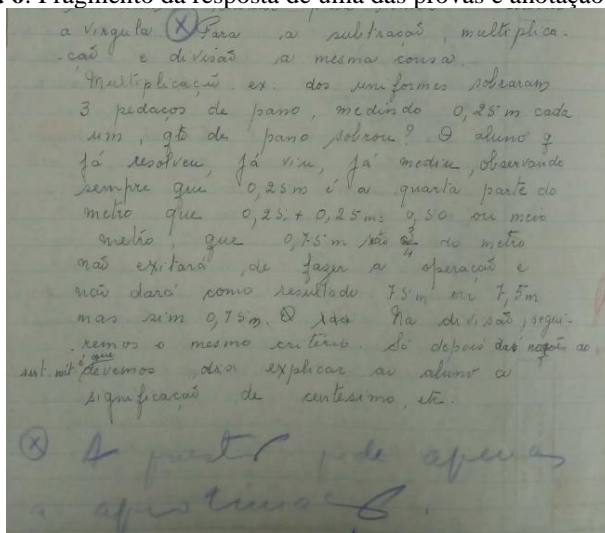 6. Fragmento da resposta de uma das provas e anotação
a virgula. (X) Para a subtração, multiplica-
-caõ e divisaõ a mesma cousa.
Multiplicaçaõ ex. dos uniformes sobraram
3 pedaços de pano, medindo 0,25 m cada
um, qto de pano sobrou? O aluno q
já resolveu, já viu, já mediu, observando
sempre que 0,25m é a quarta parte do
metro que 0,25 + 0,25m 0,50 ou meio
metro, que 0,75m são 3/4 do metro
naõ exitará de fazer a operaçaõ e
naõ dará como resultado 75m ou 7,5m
mas sim 0,75m. Na divisaõ, segui-
remos o mesmo criterio. Só depois das noções do
sist. mét. é que devemos explicar ao aluno a
significaçaõ de centesimo, etc.
(X) A pede apenas
a